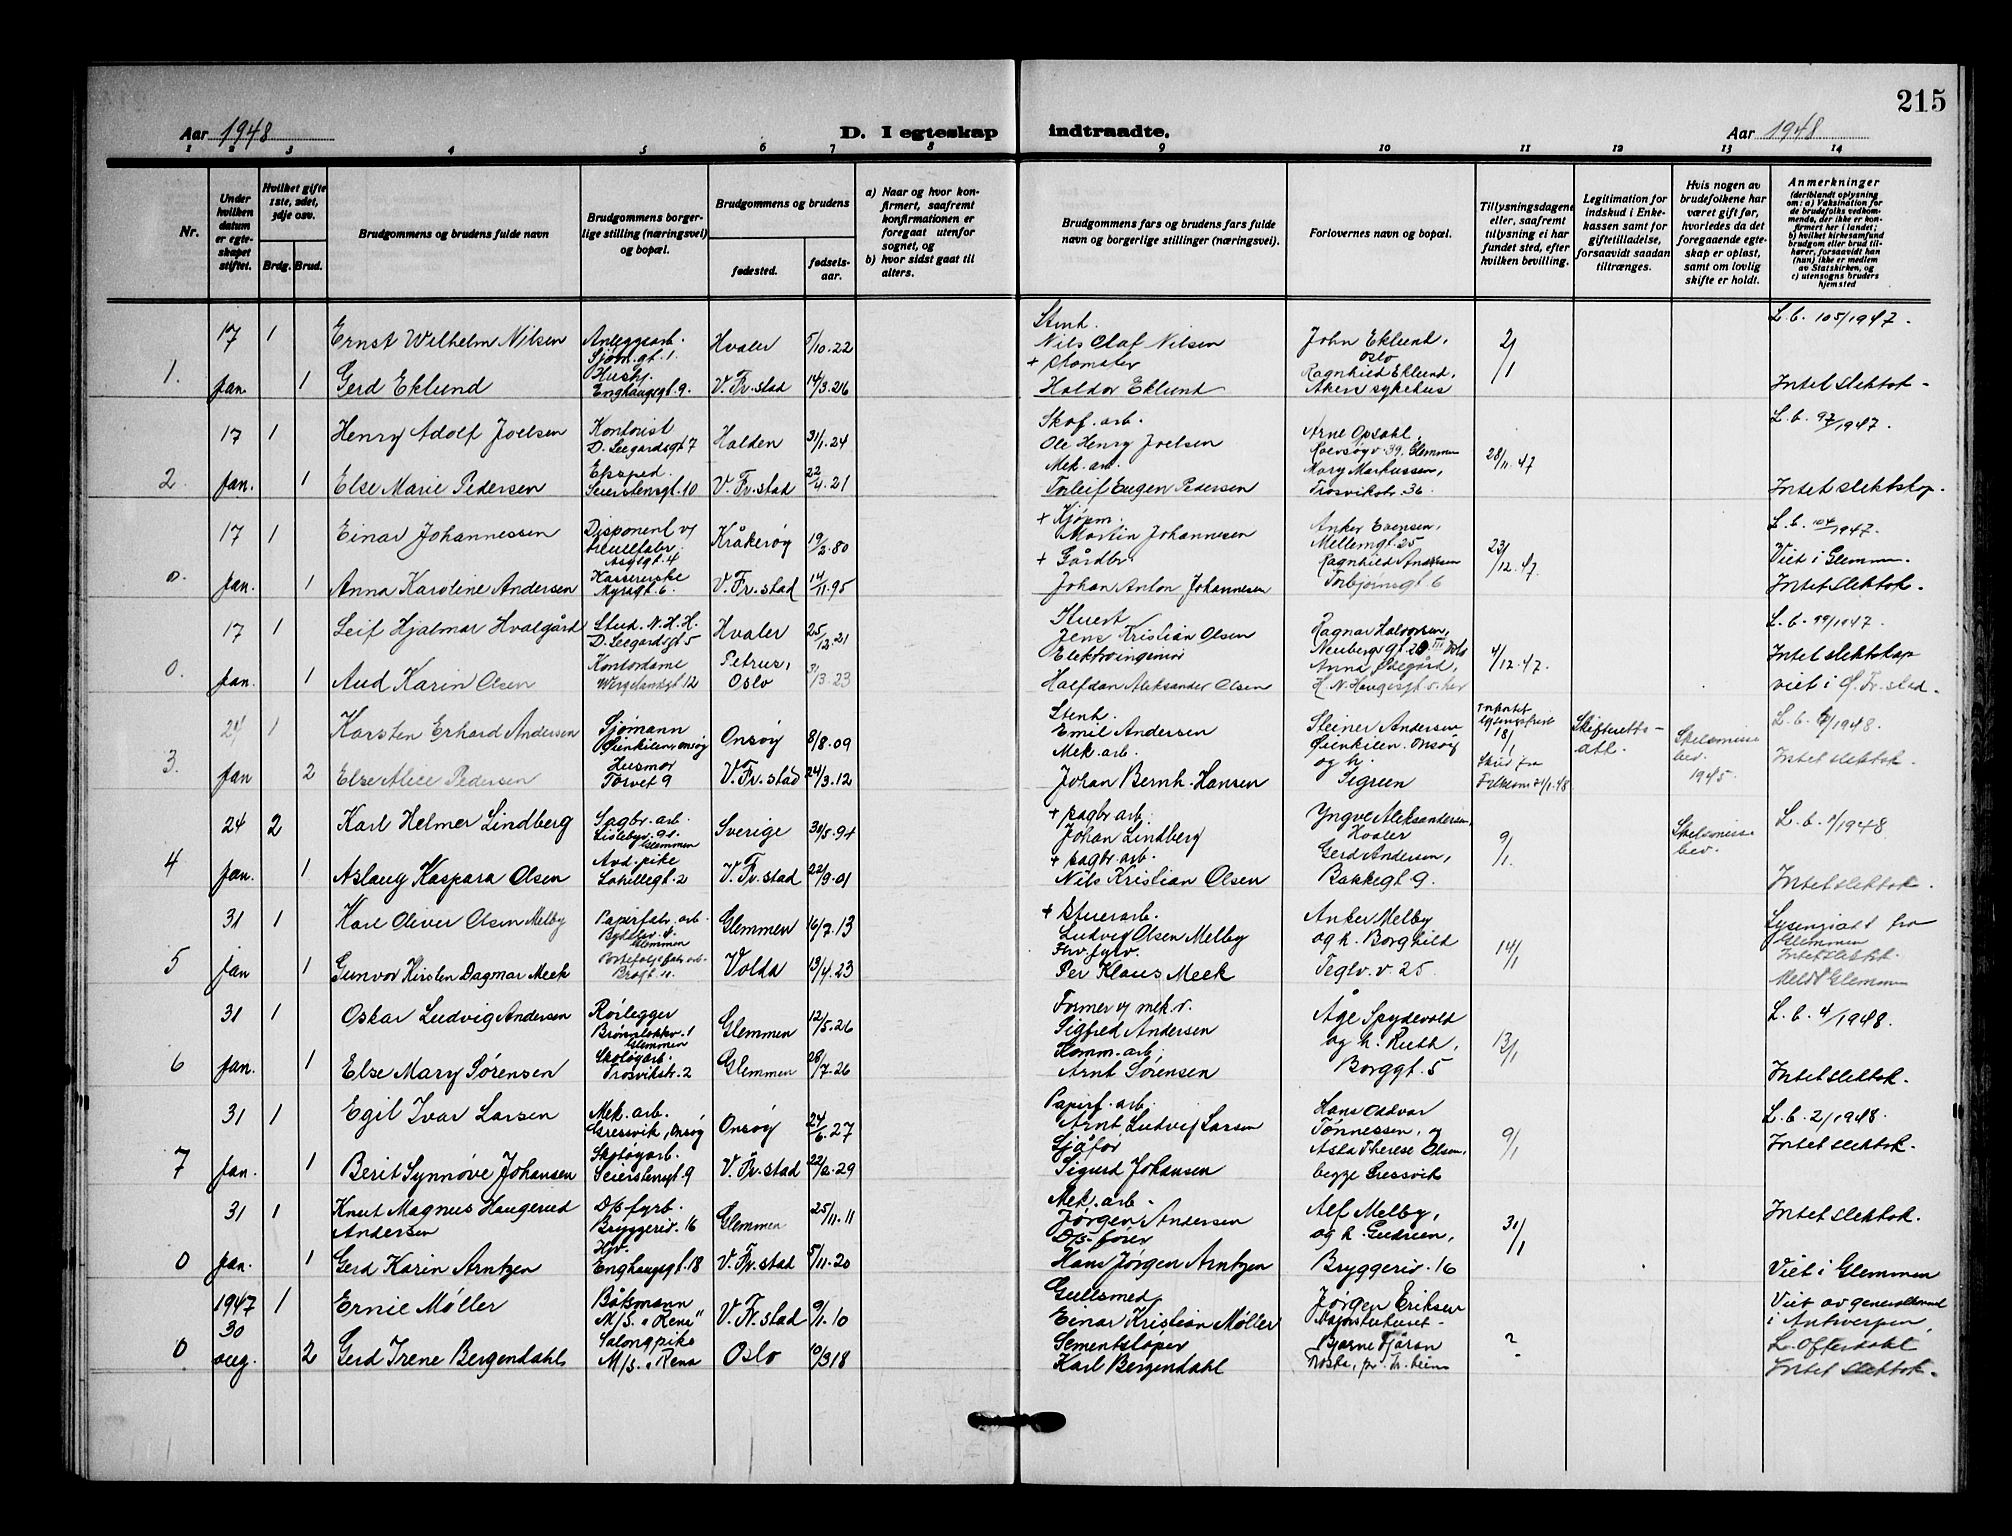 215
Aar 1948
D. I egteskap indtraadte.
Aar 1948
1 2 3 4 5 6 7 8 9 10 11 12 13 14
Nr.
Under hvilken datum er egteskapet stiftet.
Hvilket gifte 1ste, 2det, 3dje osv.
Brdg. Brud.
Brudgommens og brudens fulde navn
Brudgommens borgerlige stilling (næringsvei) og bopæl.
Brudgommens og brudens
fødested.
fødselsaar.
a) Naar og hvor konfirmert, saafremt konfirmationen er foregaat utenfor sognet, og
b) hvor sidst gaat til alters.
Brudgommens fars og brudens fars fulde navn og borgerlige stillinger (næringsvei).
Forlovernes navn og bopæl.
Tillysningsdagene eller, saafremt tillysning ei har fundet sted, efter hvilken bevilling.
Legitimation for indskud i Enkekassen samt for giftetilladelse, forsaavidt saadan tiltrænges.
Hvis nogen av brudefolkene har været gift før, hvorledes da det foregaaende egteskap er opløst, samt om lovlig skifte er holdt.
Anmerkninger
(deriblandt oplysning om: a) Vaksination for de brudefolks vedkommende, der ikke er konfirmert her i landet; b) hvilket kirkesamfund brudgom eller brud tilhører, forsaavidt han (hun) ikke er medlem av Statskirken, og c) utensogns bruders hjemsted
17 1 Ernst Wilhelm Nilsen Anleggsarb. Sjøm.gt. 1. Hvaler 5/10.22 Stenh. Nils Olaf Nilsen John Eklund, Oslo 2/1 L.b. 105/1947.
1. Jan. 1 Gerd Eklund Hushj. Enghaugsgt. 9. V. Fr.stad 14/3.26 + Haldor Eklund Ragnhild Eklund, Aker sykehus Intet slektsk.
17 1 Henry Adolf Joelsen Kontorist D. Seegårdsgt 7 Halden 31/1.24 Skof. arb. Ole Henry Joelsen Arne Opsahl, Roensøyv. 39, Glemmen 28/11.47 L.b. 97/1947.
2. Jan. 1 Else Marie Pedersen Eksped. Seierstensgt. 10 V. Fr.stad 22/4.21 Mek. arb. Torleif Eugen Pedersen Mary Markussen, Trosvikstr. 36. Intet slektskap.
17 1 Einar Johannessen Disponent Kråkerøy 19/2.80 + Kjøpm. Martin Johannesen Anker Evensen, Mellemgt. 25 23/12.47. L.b. 104/1947. Viet i Glemmen
0. Jan. 1 Anna Karoline Andersen Kassererske Myragt. 6. V. Fr.stad 14/11.95 + Gårdbr. Johan Anton Johannesen Ragnhild Andersen Torbjørnsgt. 6 Intet slektsk.
17 1 Leif Hjalmar Hvalgård Stud. N.H.H. D. Seegårdsgt 5 Hvaler 25/12.21 Jens Kristian Olsen Ragnar Halvorsen, 4/12.47. L.b. 99/1947
0. Jan. 1 Aud Karin Olsen Kontordame Wergelandsgt 12 Petrus, Oslo 3/3.23 Elektroingeniør Halfdan Aleksander Olsen Anna Ødegård, H. N. Haugesgt. 5. her Intet slektskap viet i Ø. Fr.stad.
24 1 Karsten Erhard Andersen Sjømann Øienkilen, Onsøy Onsøy 8/8.09 Stenh. Emil Andersen Steinar Andersen Øienkilen, Onsøy 18/1 Skifteretts-att. L.b. 6/1948.
3. Jan 2 Else Alice Pedersen Husmor Torvet 9 V. Fr.stad 24/3.12 Mek. arb. Johan Bernh. Hansen og h. Sigrun Skilsmisse bev. 1945. Intet slektsk.
24 2 Karl Helmer Lindberg Sagbr. arb. Lislebyv. 91. Glemmen Sverige 30/5.94 + Sagbr. arb. Johan Lindberg Yngve Aleksandersen, Hvaler 9/1. Skilsmisse bev. L.b. 1/1948.
4 Jan. 1 Aslaug Kaspara Olsen Avd. pike Lahellegt. 2 V. Fr.stad 22/9.01 + Sagbr. arb. Nils Kristian Olsen Gerd Andersen, Bakkegt 9. Intet slektsk.
31 1 Karl Oliver Olsen Melby Papirfabr. arb. Glemmen Glemmen 16/7.13 + Stuerarb. Ludvig Olsen Melby Anker Melby og h. Borghild 14/1 Lysningsatt fra Glemmen Intet slektsk.
5 Jan 1 Gunvor Kirsten Dagmar Meek Porteføljefabr. arb. Volda 13/4.23 Per Klaus Meek Teglv. v. 25. Meldt Glemmen
31 1 Oskar Ludvig Andersen Rørlegger Glemmen Glemmen 12/5.26 Former v/ mek. v. Sigfred Andersen Åge Spydevold og h. Ruth, 13/1 L.b. 4/1948.
6 Jan. 1 Else Mary Sørensen Skotøyarb. Trosvikstr. 2 Glemmen 28/7.26 Komm. arb. Arnt Sørensen Borggt. 5 Intet slektsk.
31 1 Egil Ivar Larsen Mek. arb. Gressvik, Onsøy Onsøy 24/6.27 Papirf. arb. Arnt Ludvig Larsen Hans Oddvar Tønnessen, og 9/1 L.b. 2/1948.
7 Jan. 1 Berit Synnøve Johansen Skotøyarb. Seierstengt. 9 V. Fr.stad 29 Sjåfør Sigurd Johansen Olsen, begge Gressvik Intet slektsk.
31 1 Knut Magnus Haugerud Andersen D/S fyrb. Bryggeriv. 16 Glemmen 25/11.11 Mek. arb. Jørgen Andersen Alf Melby, og h. Gudrun, 31/1 Intet slektsk.
0 Jan. 1 Gerd Karin Arntzen Enghaugsgt. 18 V. Fr.stad 5/11.20 D/S-fører Hans Jørgen Arntzen Bryggeriv. 16 Viet i Glemmen
1947 30 1 Ernie Møller Båtsmann M/S. "Rena" V. Fr.stad 9/1.10 Gullsmed Einar Kristian Møller Jørgen Eriksen Viet av generalkonsul i Antwerpen,
0 aug. 2 Gerd Irene Bergendahl Salongpike M/S. "Rena Oslo 10/3 18 Sementstøper Karl Bergendahl Bjarne ? L. Oftedahl Intet slektsk.